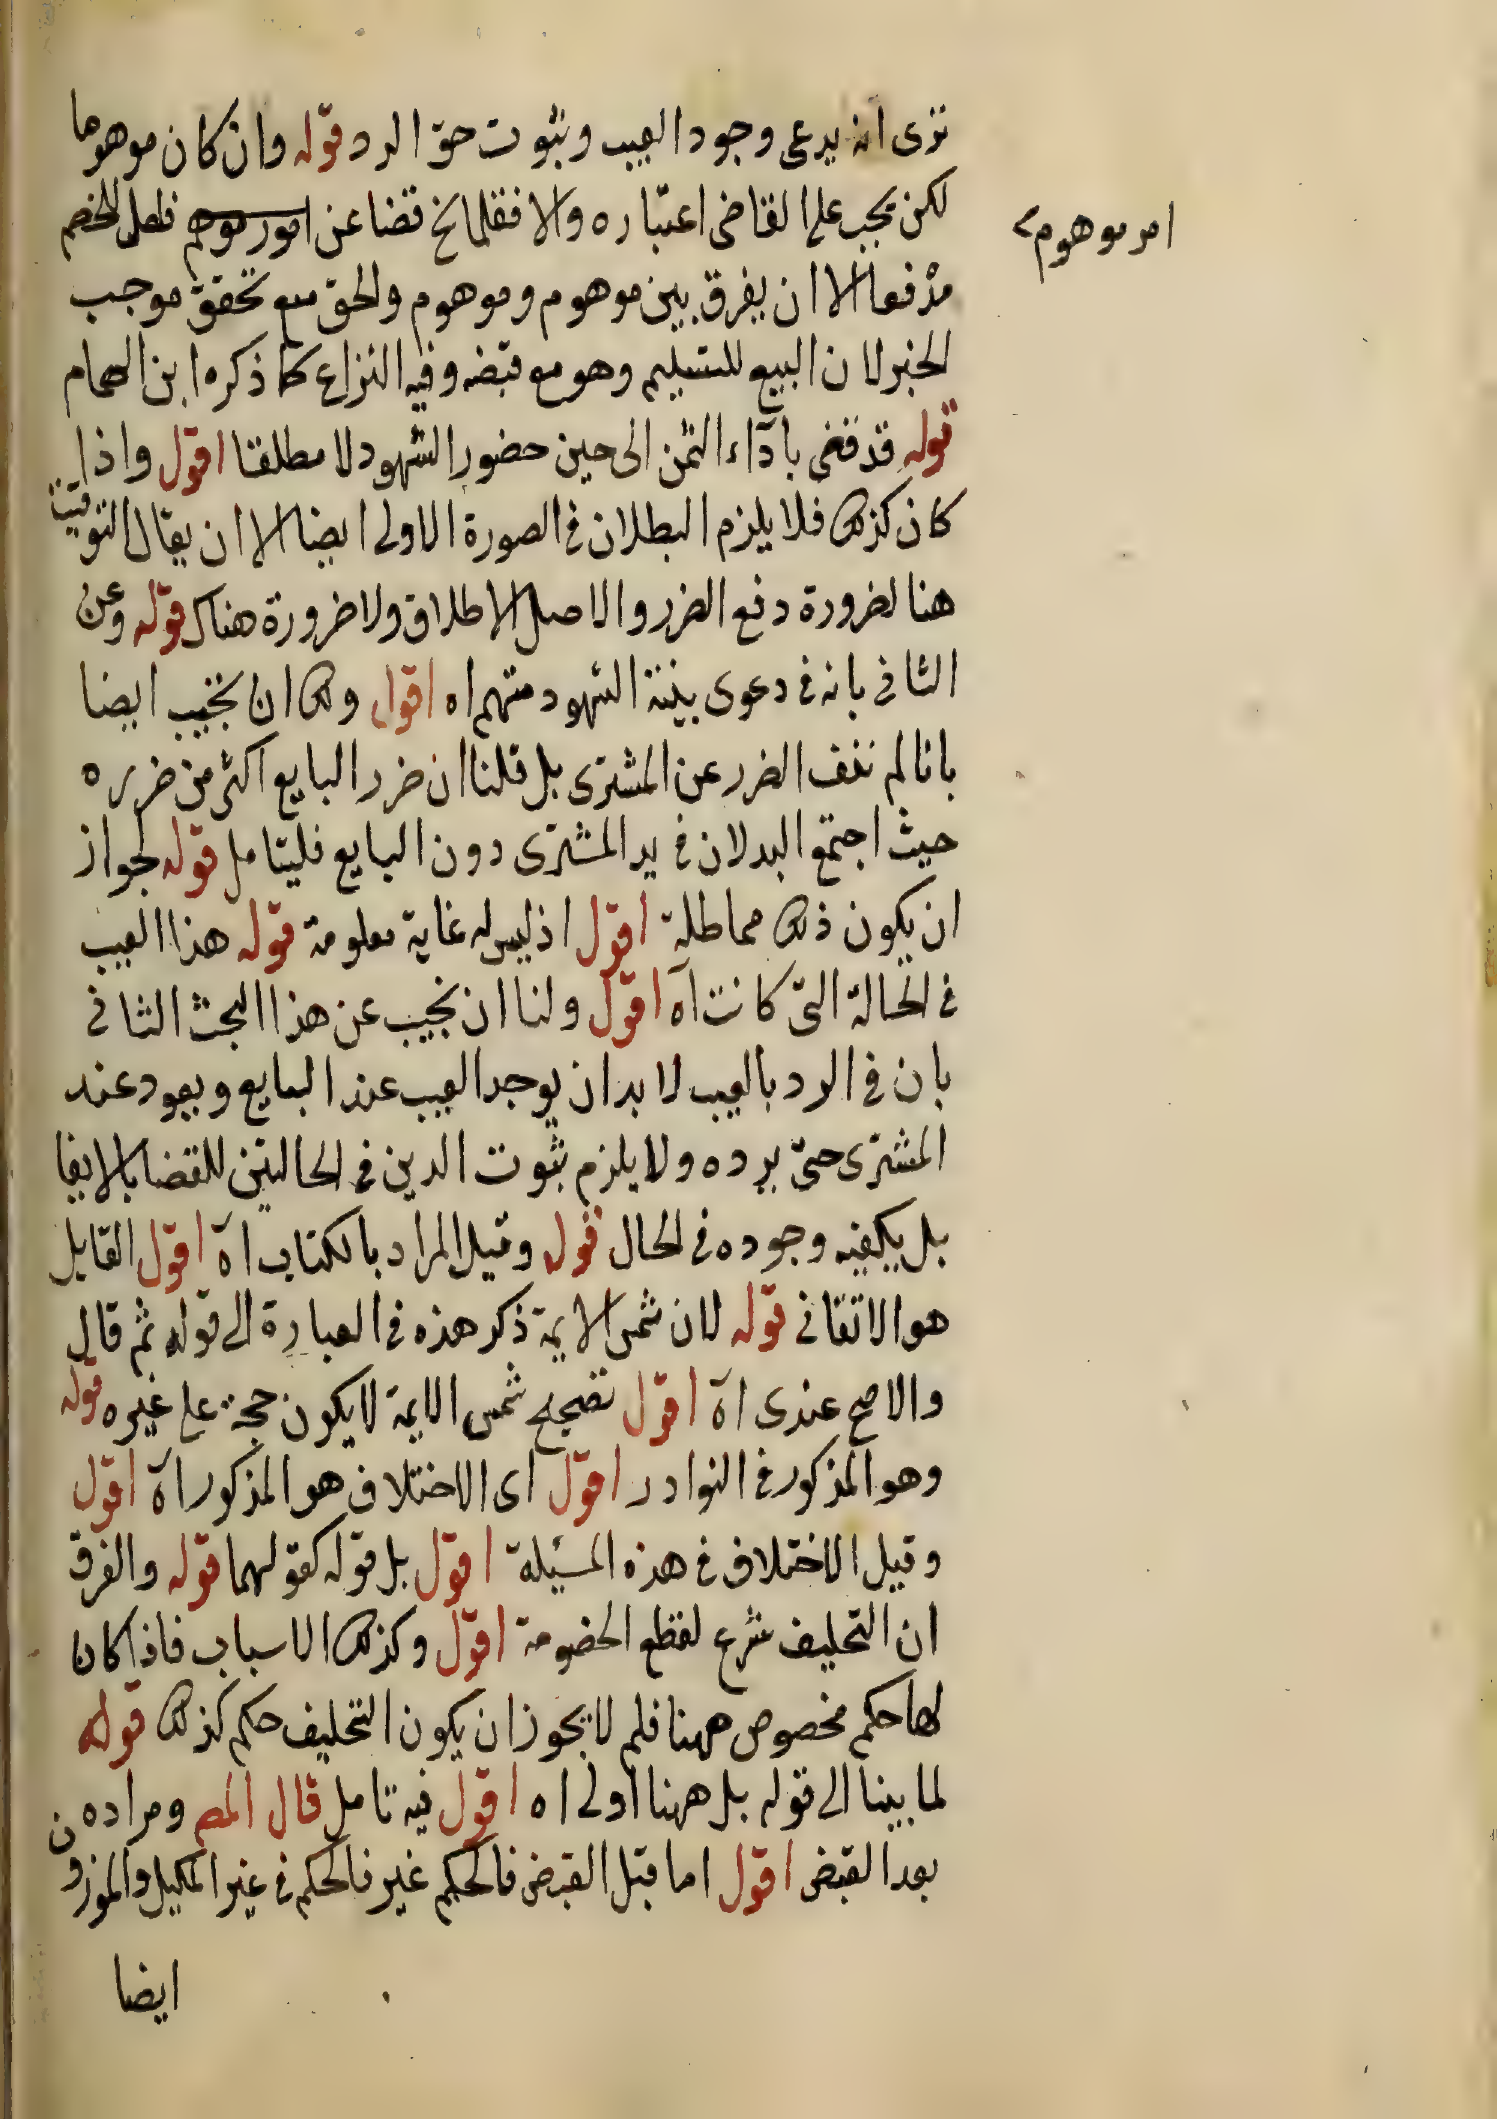 ترى انه يدعى وجود العيب وثبوت حق الرد قوله وان كان موهوما
لكن يجب على القاضى اعتباره والا فقلما يخ قضا عن امور موهم فلعل للخصم
امر موهوم
مدفعا الا ان يفرق بين موهوم وموهوم والحق مع تحقق موجب
الخبر لان البيع للتسليم وهو مع قبضه وفيه النزاع كما ذكره ابن الهمام
قوله قد قضى باداء الثمن الى حين حضور الشهود لا مطلقا اقول واذا
كان كذلك فلا يلزم البطلان فى الصورة الاولى ايضا الا ان يقال التوقيت
هنا لضرورة دفع الضرر والاصل الاطلاق ولا ضرورة هناك قوله وعن
الثانى بانه فى دعوى بينة الشهود متهم اه اقول ولك ان تجيب ايضا
بانا لم ننف الضرر عن المشترى بل قلنا ان ضرر البايع اكثر من ضرره
حيث اجتمع البدلان فى يد المشترى دون البايع فليتامل قوله لجواز
ان يكون ذلك مماطلة اقول اذ ليس له غاية معلومة قوله هذا العيب
فى الحالة التى كانت اه اقول ولنا ان نجيب عن هذا البحث الثانى
بان فى الرد بالعيب لا بد ان يوجد العيب عند البايع ويعود عند
المشترى حتى يرده ولا يلزم ثبوت الدين فى الحالتين للقضا بالايفا
بل يكفيه وجوده فى الحال قوله وقيل المراد بالكتاب اه اقول القايل
هو الاتقانى قوله لان شمس الايمة ذكر هذه فى العبارة الى قوله ثم قال
والاصح عندى اه اقول تصحيح شمس الايمة لا يكون حجة على غيره قوله
وهو المذكور فى النوادر اقول اى الاختلاف هو المذكور اه اقول
وقيل الاختلاف فى هذه المسئلة اقول بل قوله كقولهما قوله والفرق
ان التحليف شرع لقطع الخصومة اقول وكذلك الاسباب فاذا كان
لها حكم مخصوص ههنا فلم لا يجوز ان يكون التحليف حكم كذلك قوله
لما بينا الى قوله بل ههنا اولى اه اقول فيه تامل قال المص ومراده
بعد القبض اقول اما قبل القبض فالحكم غير فالحكم فى غير المكيل والموزون
ايضا